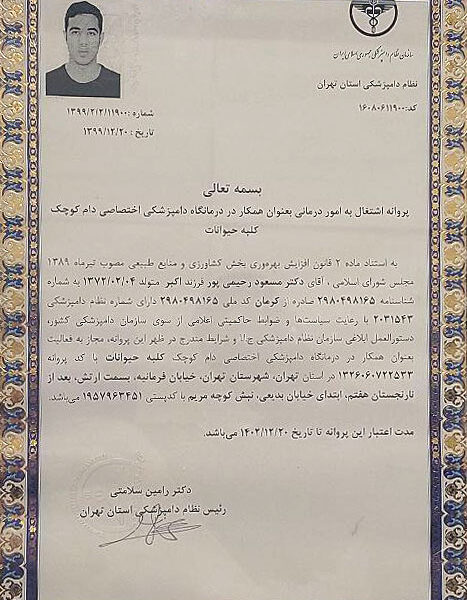 سازمان نظام دامپزشکی جمهوری اسلامی ایران
نظام دامپزشکی استان تهران
کد: ۱۶۰۸۰۶۱۱۹۰۰
شماره: ۱۳۹۹/۲/۲/۱۱۹۰۰
تاریخ : ۱۳۹۹/۱۲/۲۰
بسمه تعالی
پروانه اشتغال به امور درمانی بعنوان همکار در درمانگاه دامپزشکی اختصاصی دام کوچک
کلبه حیوانات
به استناد ماده ۲ قانون افزایش بهره‌وری بخش کشاورزی و منابع طبیعی مصوب تیرماه ۱۳۸۹
مجلس شورای اسلامی ، آقای دکتر مسعود رحیمی پور فرزند اکبر متولد ۱۳۷۲/۰۲/۰۴ به شماره
شناسنامه ۲۹۸۰۴۹۸۱۶۵ صادره از کرمان کد ملی ۲۹۸۰۴۹۸۱۶۵ دارای شماره نظام دامپزشکی
۲۰۳۱۵۴۳ با رعایت سیاست‌ها و ضوابط حاکمیتی اعلامی از سوی سازمان دامپزشکی کشور،
دستورالعمل ابلاغی سازمان نظام دامپزشکی ج.ا.ا و شرایط مندرج در ظهر این پروانه، مجاز به فعالیت
بعنوان همکار در درمانگاه دامپزشکی اختصاصی دام کوچک کلبه حیوانات با کد پروانه
۱۳۲۶۰۶۰۷۲۲۵۳۳ در استان تهران، شهرستان تهران، خیابان فرمانیه، بسمت ارتش، بعد از
نارنجستان هفتم، ابتدای خیابان بدیعی، نبش کوچه مریم با کدپستی ۱۹۵۷۹۶۳۴۵۱ می‌باشد.
مدت اعتبار این پروانه تا تاریخ ۱۴۰۲/۱۲/۲۰ می‌باشد.
دکتر رامین سلامتی
رئیس نظام دامپزشکی استان تهران